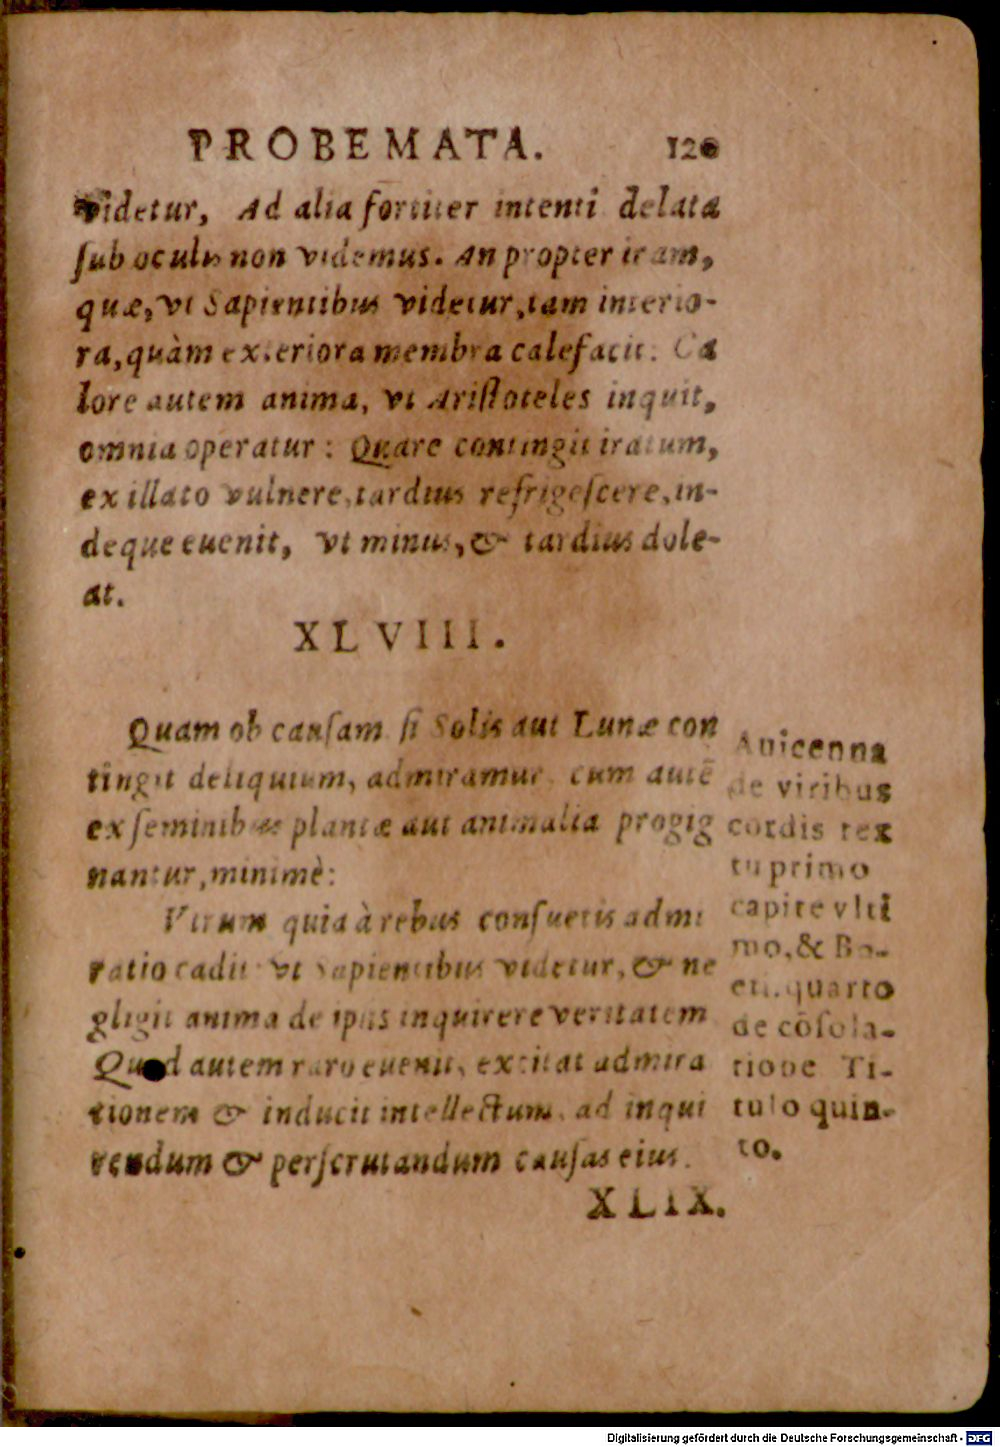 PROBEMATA. 120
videtur, Ad alia fortiter intenti delata
ſub oculis non videmus. An propter iram,
quæ, vt Sapientibus videtur, tam interio-
ra, quàm exteriora membra calefacit: Ca
lore autem anima, vt Ariſtoteles inquit,
omnia operatur: Quare contingit iratum,
ex illato vulnere, tardius refrigeſcere, in-
deque euenit, vt minus, & tardius dole-
at.
XLVIII.
Quam ob cauſam ſi Solis aut Lunæ con
tingit deliquium, admiramur, cum autē
ex ſeminibus plantæ aut animalia progig
nantur, minimè:
Vtrum quia à rebus conſuetis admi
ratio cadit vt Sapientibus videtur, & ne
gligit anima de ipſis inquirere veritatem
Quod autem raro euenit, excitat admira
tionem & inducit intellectum, ad inqui
rendum & perſcrutandum cauſas eius.
XLIX.
Auicenna
de viribus
cordis tex
tu primo
capite vlti
mo, & Bo-
eti. quarto
de cōſola-
tione Ti-
tulo quin-
to.
Digitalisierung gefördert durch die Deutsche Forschungsgemeinschaft - DFG